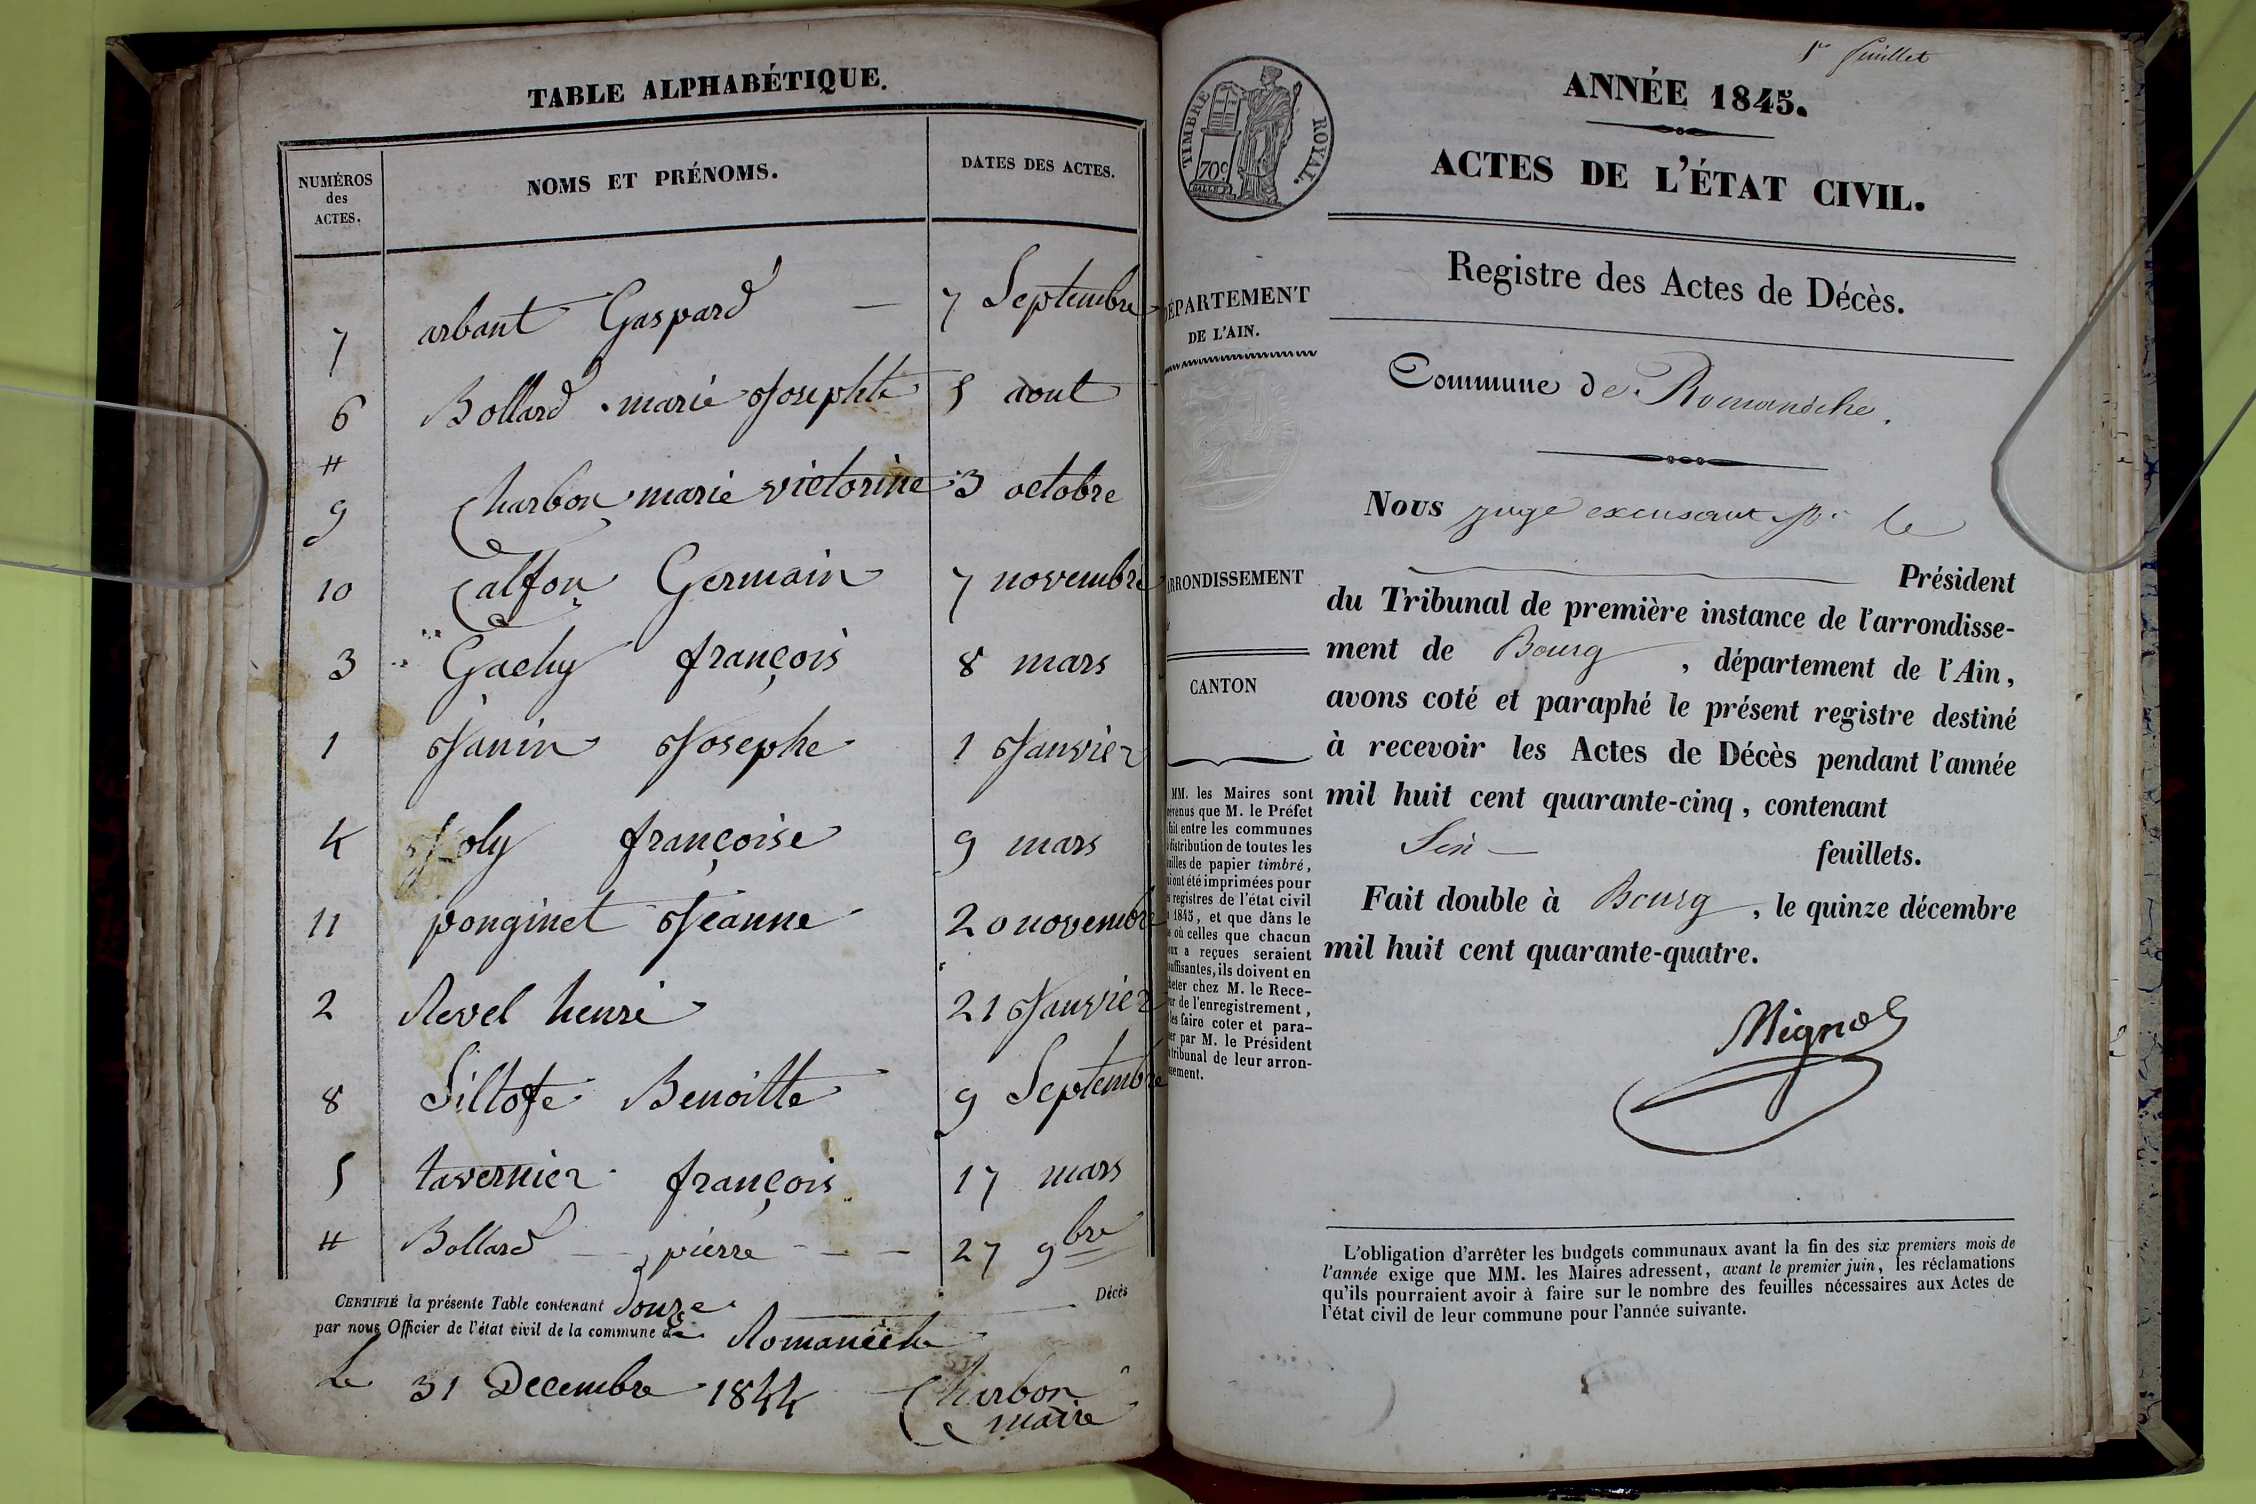 TABLE ALPHABÉTIQUE.
NUMÉROS
des
ACTES.
NOMS ET PRÉNOMS.
DATES DES ACTES.
7 arbant Gaspard — 7 Septembre
6 Bollard marie Josephte 5 aout
#
9 Charbon marie victorine 3 octobre
10 Calfon Germain 7 novembre
3 Gachy françois 8 mars
1 Janin Josephe 1 Janvier
4 Joly françoise 9 mars
11 ponginet Jeanne 20 novembre
2 Revel henri 21 Janvier
8 Benoitte 9 Septembre
5 tavernier françois 17 mars
# Bollard — pierre — — 27 9bre
CERTIFIÉ la présente Table contenant Douze Décès
par nous Officier de l'état civil de la commune de Romanèche
Le 31 Decembre 1844 Charbon
maire
1er feuillet
TIMBRE ROYAL.
70c
ANNÉE 1845.
ACTES DE L'ÉTAT CIVIL.
Registre des Actes de Décès.
DÉPARTEMENT
DE L'AIN.
Commune de Romanèche.
ARRONDISSEMENT
CANTON
MM. les Maires sont
prévenus que M. le Préfet
fait entre les communes
distribution de toutes les
feuilles de papier timbré,
qui ont été imprimées pour
les registres de l'état civil
1845, et que dans le
où celles que chacun
eux a reçues seraient
insuffisantes, ils doivent en
acheter chez M. le Rece-
veur de l'enregistrement,
les faire coter et para-
pher par M. le Président
tribunal de leur arron-
dissement.
Nous juge excusant pr le
Président
du Tribunal de première instance de l'arrondisse-
ment de Bourg, département de l'Ain,
avons coté et paraphé le présent registre destiné
à recevoir les Actes de Décès pendant l'année
mil huit cent quarante-cinq, contenant
Six — feuillets.
Fait double à Bourg, le quinze décembre
mil huit cent quarante-quatre.
L'obligation d'arrêter les budgets communaux avant la fin des six premiers mois de
l'année exige que MM. les Maires adressent, avant le premier juin, les réclamations
qu'ils pourraient avoir à faire sur le nombre des feuilles nécessaires aux Actes de
l'état civil de leur commune pour l'année suivante.